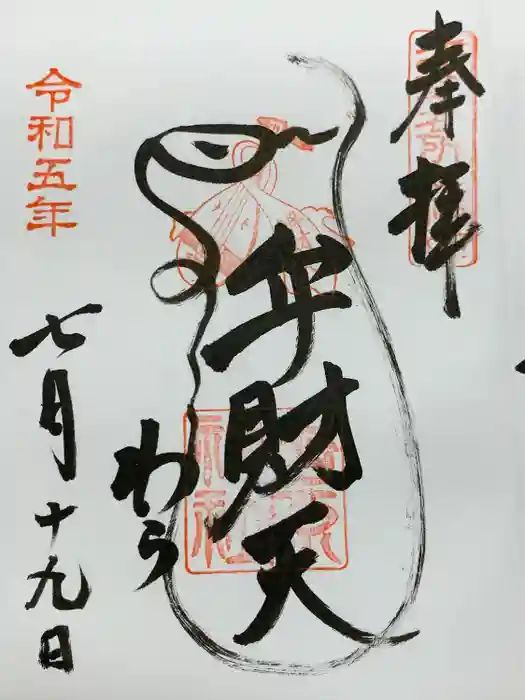 奉拝
弁財天
わら
令和五年
七月十九日